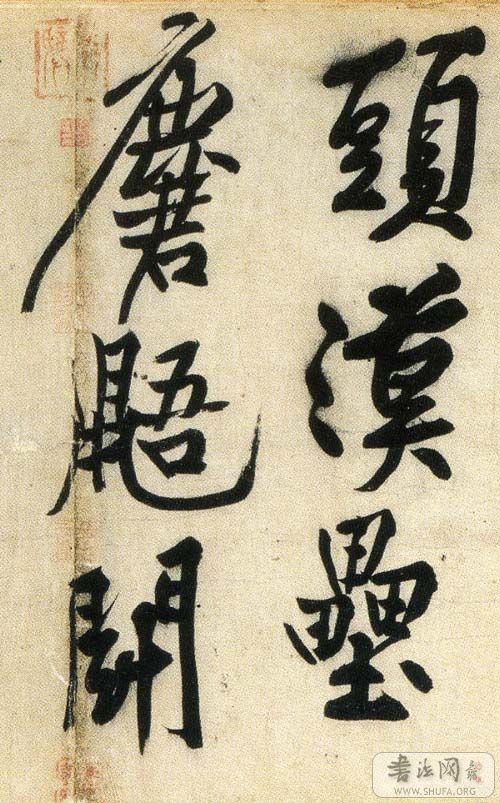 頭漠壘
麏鼯開
書法网
WWW.SHUFA.ORG